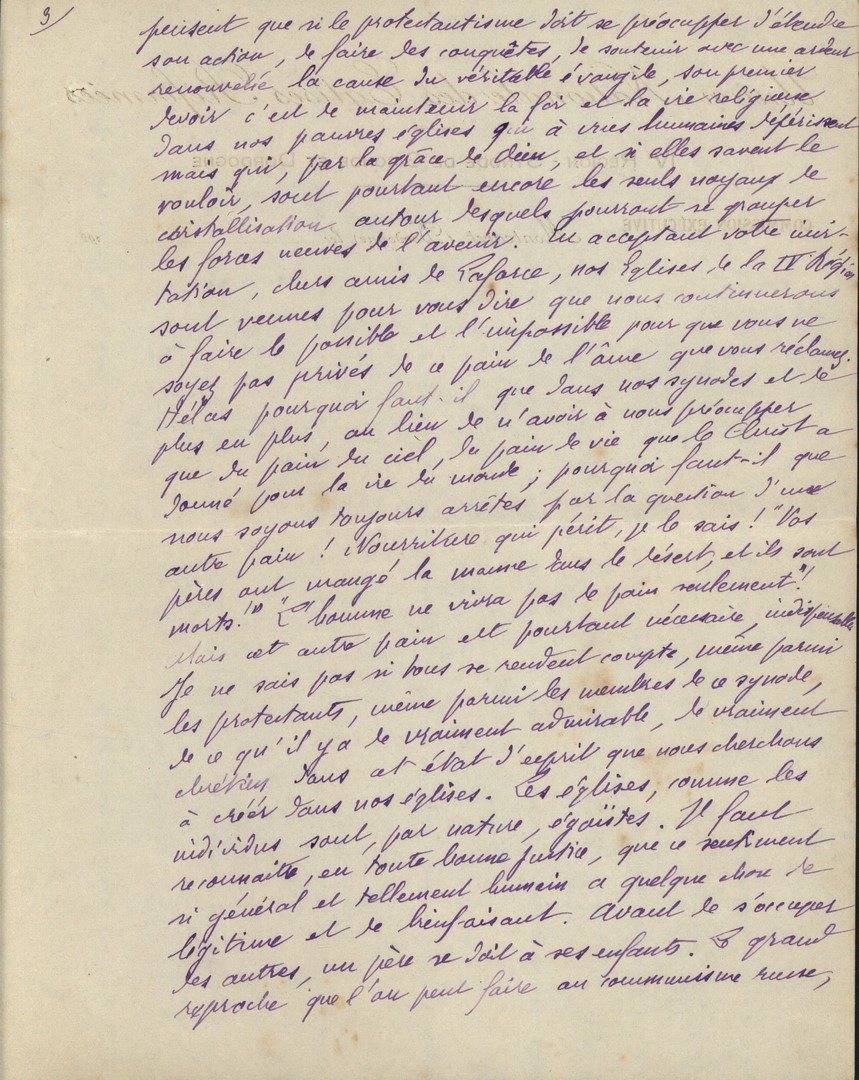 3/
pensent que si le protestantisme doit se préoccuper d'étendre
son action, de faire des conquêtes, de soutenir avec une ardeur
renouvelée la cause du véritable évangile, son premier
devoir c'est de maintenir la foi et la vie religieuse
dans nos pauvres églises qui à vues humaines dépérissent
mais qui, par la grâce de Dieu, et si elles savent le
vouloir, sont pourtant encore les seuls noyaux de
cristallisation autour desquels pourront se grouper
les forces neuves de l'avenir. En acceptant votre invi-
tation, chers amis de Laforce, nos Eglises de la IVe Région
sont venues pour vous dire que nous continuerons
à faire le possible et l'impossible pour que vous ne
soyez pas privés de ce pain de l'âme que vous réclamez.
Hélas pourquoi faut-il que dans nos synodes et de
plus en plus, au lieu de n'avoir à nous préoccuper
que du pain du ciel, du pain de vie que le Christ a
donné pour la vie du monde ; pourquoi faut-il que
nous soyons toujours arrêtés par la question d'une
autre pain ! Nourriture qui périt, je le sais ! "Vos
pères ont mangé la manne dans le désert, et ils sont
morts !" "L'homme ne vivra pas de pain seulement" !
Mais cet autre pain est pourtant nécessaire, indispensable
Je ne sais pas si tous se rendent compte, même parmi
les protestants, même parmi les membres de ce synode,
de ce qu'il y a de vraiment admirable, de vraiment
chrétien dans cet état d'esprit que nous cherchons
à créer dans nos églises. Les églises, comme les
individus sont, par nature, égoïstes. Il faut
reconnaître, en toute bonne justice, que ce sentiment
si général et tellement humain a quelque chose de
légitime et de bienfaisant. Avant de s'occuper
des autres, un père se doit à ses enfants. Le grand
reproche que l'on peut faire au communisme russe,